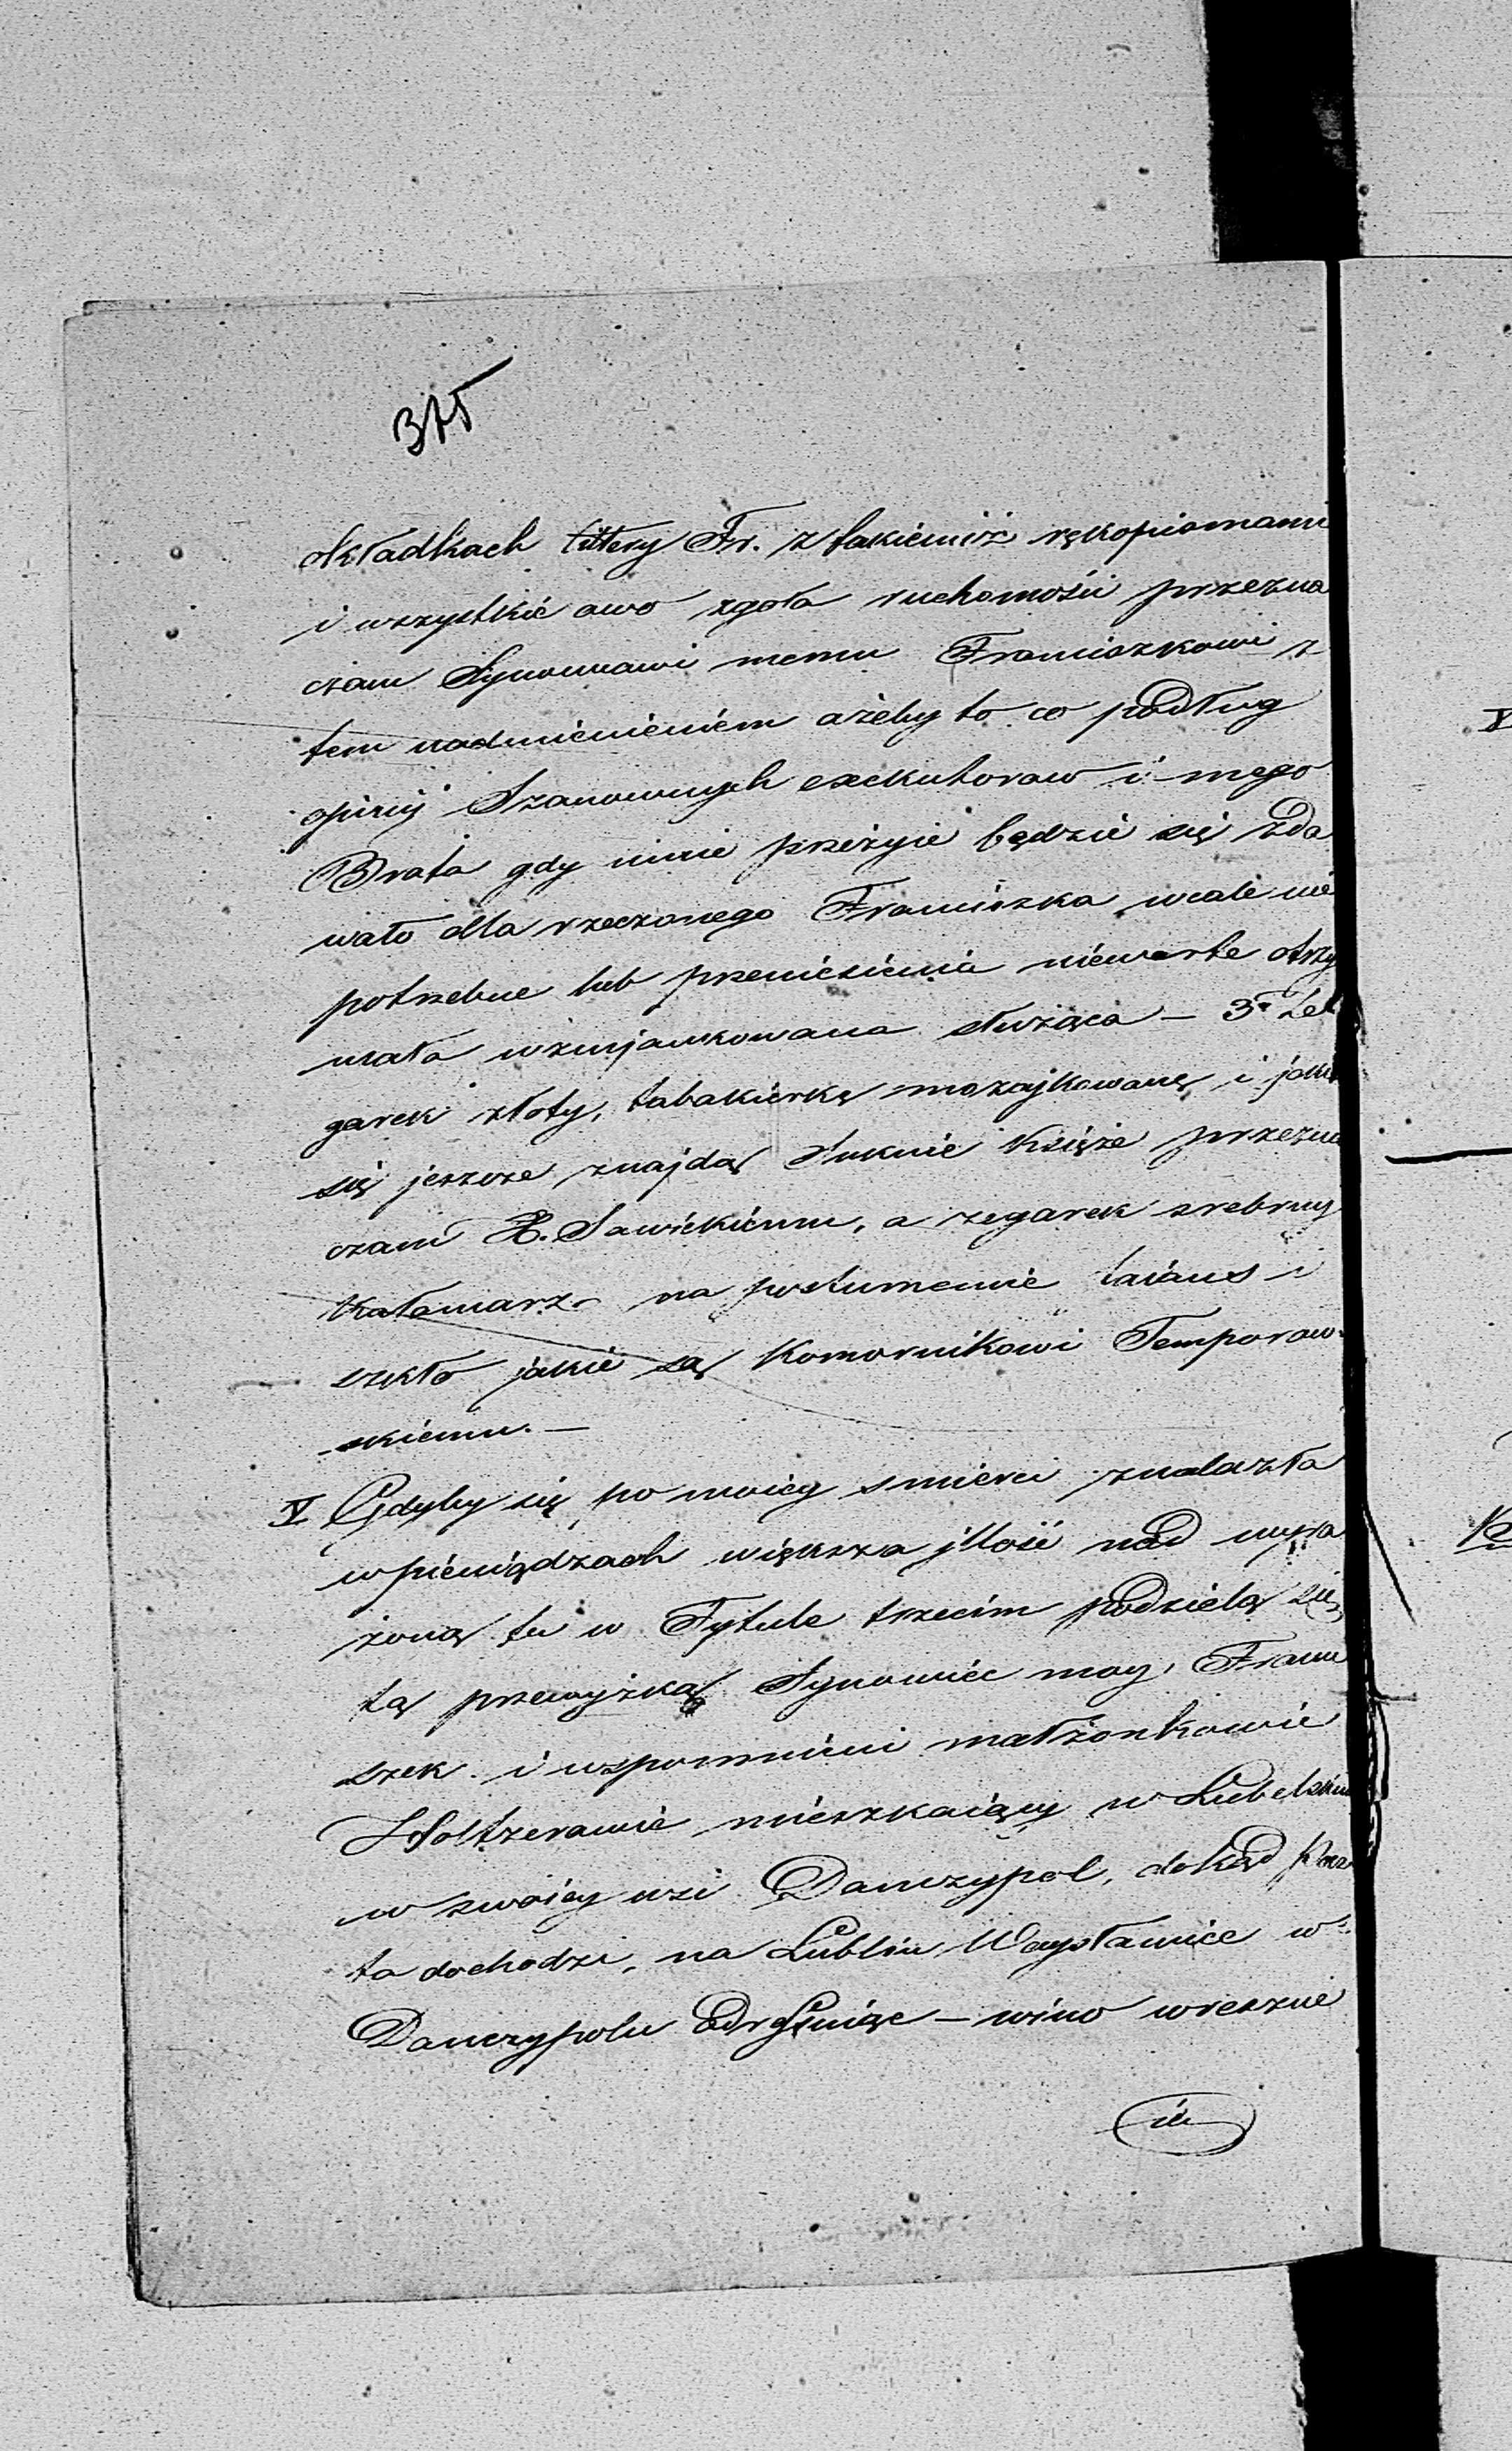 375
okładkach littery Fr. z takiemiż rękopismami
i wszystkie owo zgoła ruchomości przezna
czam Synowcowi memu Franciszkowi z
tem nadmienieniem ażeby to co podług
opinij Szanownych exekutorow i mego
Brata gdy mnie przeżyie będzie się zda
wało dla rzeczonego Franciszka wcale nie
potrzebne lub przeniesienia niewarte otrzy
mała wzmjankowana służąca — 3º Ze
garek złoty, tabakierkę mozajkowanę i jakie
się jeszcze znajdą Suknie Księże przezna
czam X. Sawickiemu, a zegarek srebrny
Kałamarz na postumencie faians i
szkło jakie są Komornikowi Temporow-
-skiemu. —
V Gdyby się po moiey smierci znalazła
w pieniądzach większa jlość nad wyra
żoną tu w Tytule trzecim podzielą się
tą przewyżką Synowiec moy, Franci
szek i wspomnieni małżonkowie
Holtzerowie mieszkaiący w Lubelskim
w swoiey wsi Danczypol, dokąd Pocz
ta dochodzi, na Lublin Woysławice w
Danczypolu — wino wreszcie